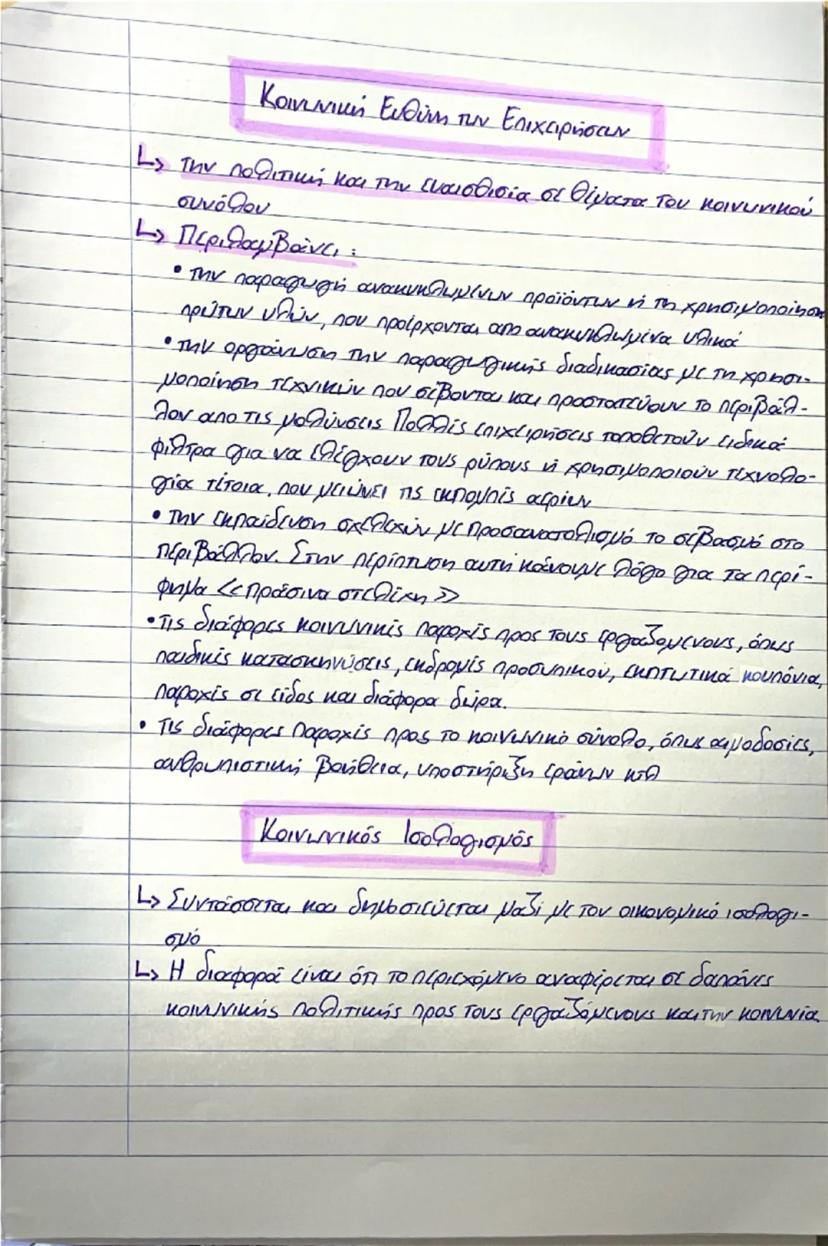 Κοινωνική Ευθύνη των Επιχειρήσεων
↳ την πολιτική και την ευαισθησία σε θέματα του κοινωνικού
συνόλου
↳ Περιλαμβάνει:
• την παραγωγή ανακυκλωμένων προϊόντων ή τη χρησιμοποίηση
πρώτων υλών, που προέρχονται από ανακυκλωμένα υλικά
• την οργάνωση την παραγωγικής διαδικασίας με τη χρησι-
μοποίηση τεχνικών που σέβονται και προστατεύουν το περιβάλ-
λον απο τις μολύνσεις Πολλές επιχειρήσεις τοποθετούν ειδικά
φίλτρα για να ελέγχουν τους ρύπους ή χρησιμοποιούν τεχνολο-
γία τέτοια, που μειώνει τις εκπομπές αερίων
• την εκπαίδευση στελεχών με προσανατολισμό το σεβασμό στο
περιβάλλον. Στην περίπτωση αυτή κάνουμε λόγο για τα περί-
φημα <<πράσινα στελέχη>>
• τις διάφορες κοινωνικές παροχές προς τους εργαζόμενους, όπως
παιδικές κατασκηνώσεις, εκδρομές προσωπικού, εκπτωτικά κουπόνια,
παροχές σε είδος και διάφορα δώρα.
• τις διάφορες παροχές προς το κοινωνικό σύνολο, όπως αιμοδοσίες,
ανθρωπιστική βοήθεια, υποστήριξη εράνων κτλ
Κοινωνικός Ισολογισμός
↳ Συντάσσεται και δημοσιεύεται μαζί με τον οικονομικό ισολογι-
σμό
↳ Η διαφορά είναι ότι το περιεχόμενο αναφέρεται σε δαπάνες
κοινωνικής πολιτικής προς τους εργαζόμενους και την κοινωνία